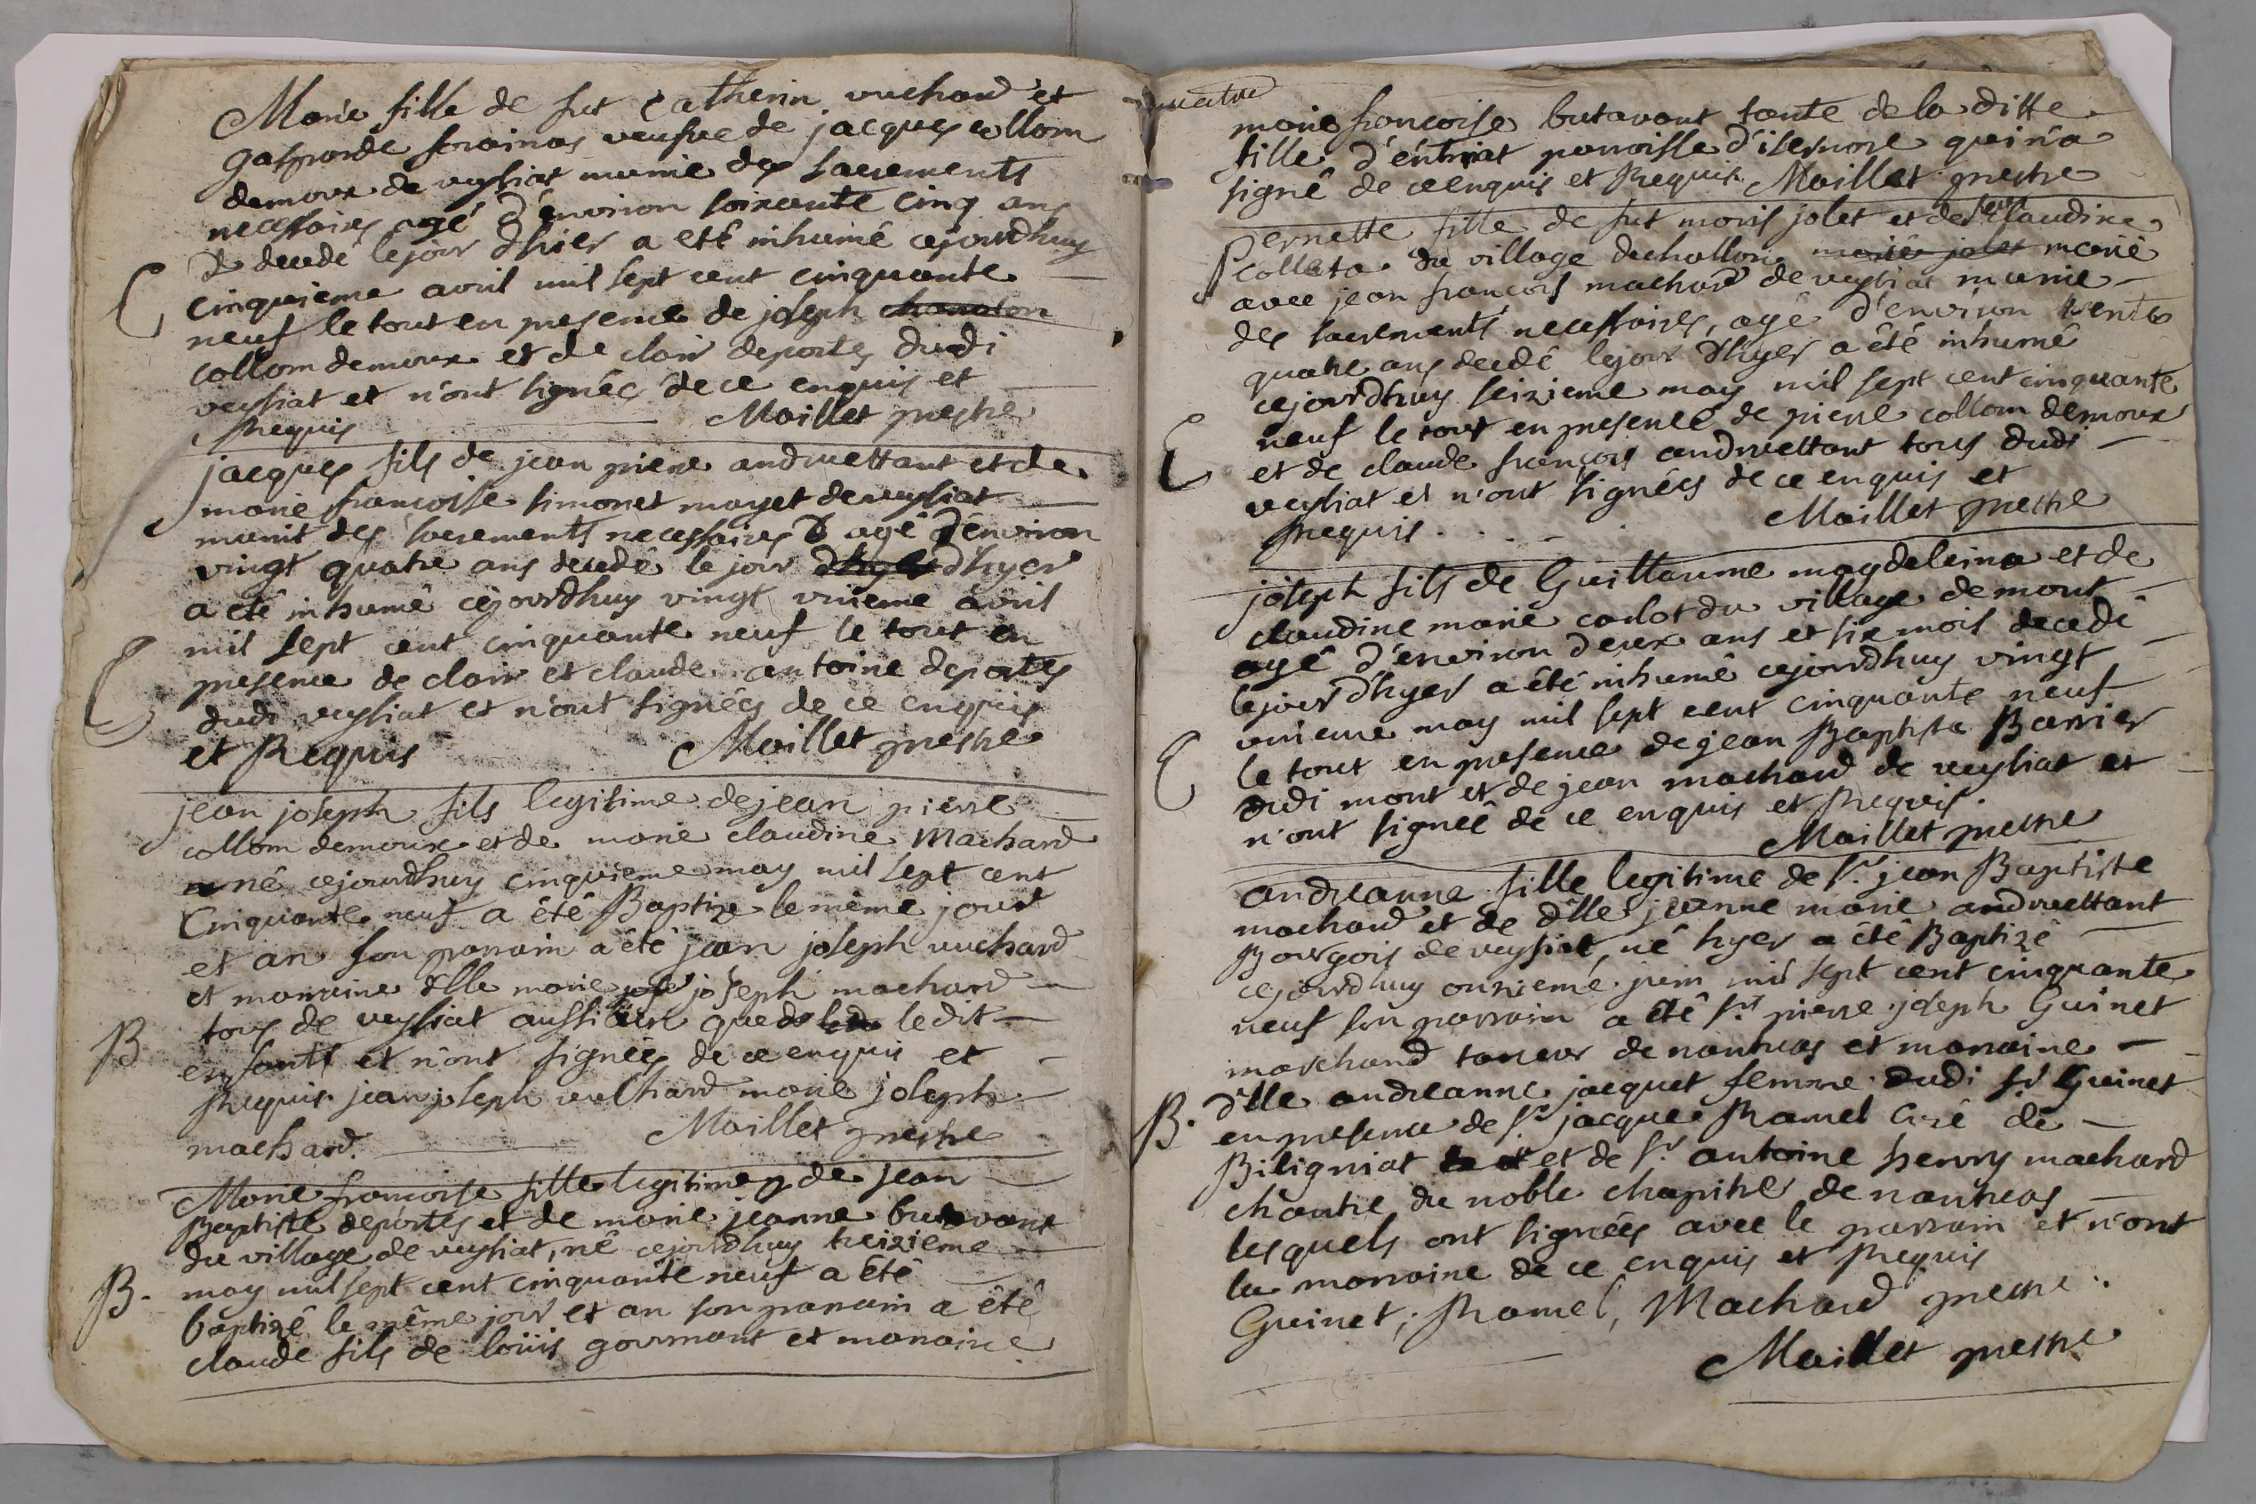 Marie fille de fut Catherin vuchard et
gasparde serainas veufve de jacques collom
demoux de veysiat munie des sacrements
necessaires agé d'environ soixante cinq ans
& decedé le jour d'hier a eté inhumé cejourdhuy
C
cinquieme avril mil sept cent cinquante
neuf le tout en presence de joseph chanalon
collom demoux et de clair deportes dudi
veysiat et n'ont signées de ce enquis et
Requis Maillet prestre
jacques fils de jean piere andruettant et de
marie francoise simonet mayet de veysiat
munit des sacrements necessaires & agé d'environ
vingt quatre ans decedé le jour dhyer dhyer
a eté inhumé cejourdhuy vingt unieme avril
mil sept cent cinquante neuf le tout en
C
presence de clair et claude antoine deportes
dudi veysiat et n'ont signées de ce enquis
et Requis Maillet prestre
jean joseph fils legitime de jean pierre
collom demoux et de marie claudine Machard
né cejourdhuy cinquieme may mil sept cent
Cinquante neuf a été Baptize le même jour
et an son parrain a été jean joseph vuchard
et marraine dlle marie joseph machard
B
tous de veysiat aussi bien que ledit
enfants et n'ont signées de ce enquis et
Requis. jean joseph vuchard marie joseph
machard. Maillet prestre
Marie francoise fille legitime de jean
Baptiste deportes et de marie jeanne butavant
du village de veysiat, né cejourdhuy treizieme
B.
may mil sept cent cinquante neuf a été
baptizé le même jour et an son parrain a été
claude fils de loüis gourmant et maraine
quatre
marie francoise butavant tante de la ditte
fille d'éntriat paroisse d'isernore qui n'a
signé de ce enquis et Requis. Maillet prestre
Pernette fille de fut moris jolet et de feu claudine
Colleta du village de challon marie jolet marié
avec jean françois machard de veysiat munie
des sacrements necessaires, agé d'environ trente
quatre ans decedé le jour d'hyer a été inhumé
cejourdhuy seizieme may mil sept cent cinquante
neuf le tout en presence de piere collom demoux
C
et de claude françois andruettant tous dudi
veysiat et n'ont signées de ce enquis et
Requis. Maillet prestre
joseph fils de Guillaume magdeleina et de
claudine marie carlot du village de mont
agé d'environ deux ans et six mois decedé
le jour d'hyer a été inhumé cejourdhuy vingt
unieme may mil sept cent cinquante neuf
C
le tout en presence de jean Baptiste Barrier
dudi mont et de jean machard de veysiat et
n'ont signeé de ce enquis et Requis.
Maillet prestre
andreanne fille legitime de sr. jean Baptiste
machard et de dlle jeanne marie andruettant
Bourgois de veysiat, né hyer a été Baptizé
cejourdhuy onzieme juin mil sept cent cinquante
neuf son parrain a été sr. pierre joseph Guinet
marchand taneur de nantuas et maraine
B.
dlle andreanne jacquet femme dudi sr Guinet
en presence de sr. jacque Ramel Curé de
Biligniat et de sr. antoine henry machard
chantre du noble chapitre de nantuas
lesquels ont signées avec le parrain et n'ont
la marraine de ce enquis et Requis
Guinet, Ramel, Machard prestre.
Maillet prestre